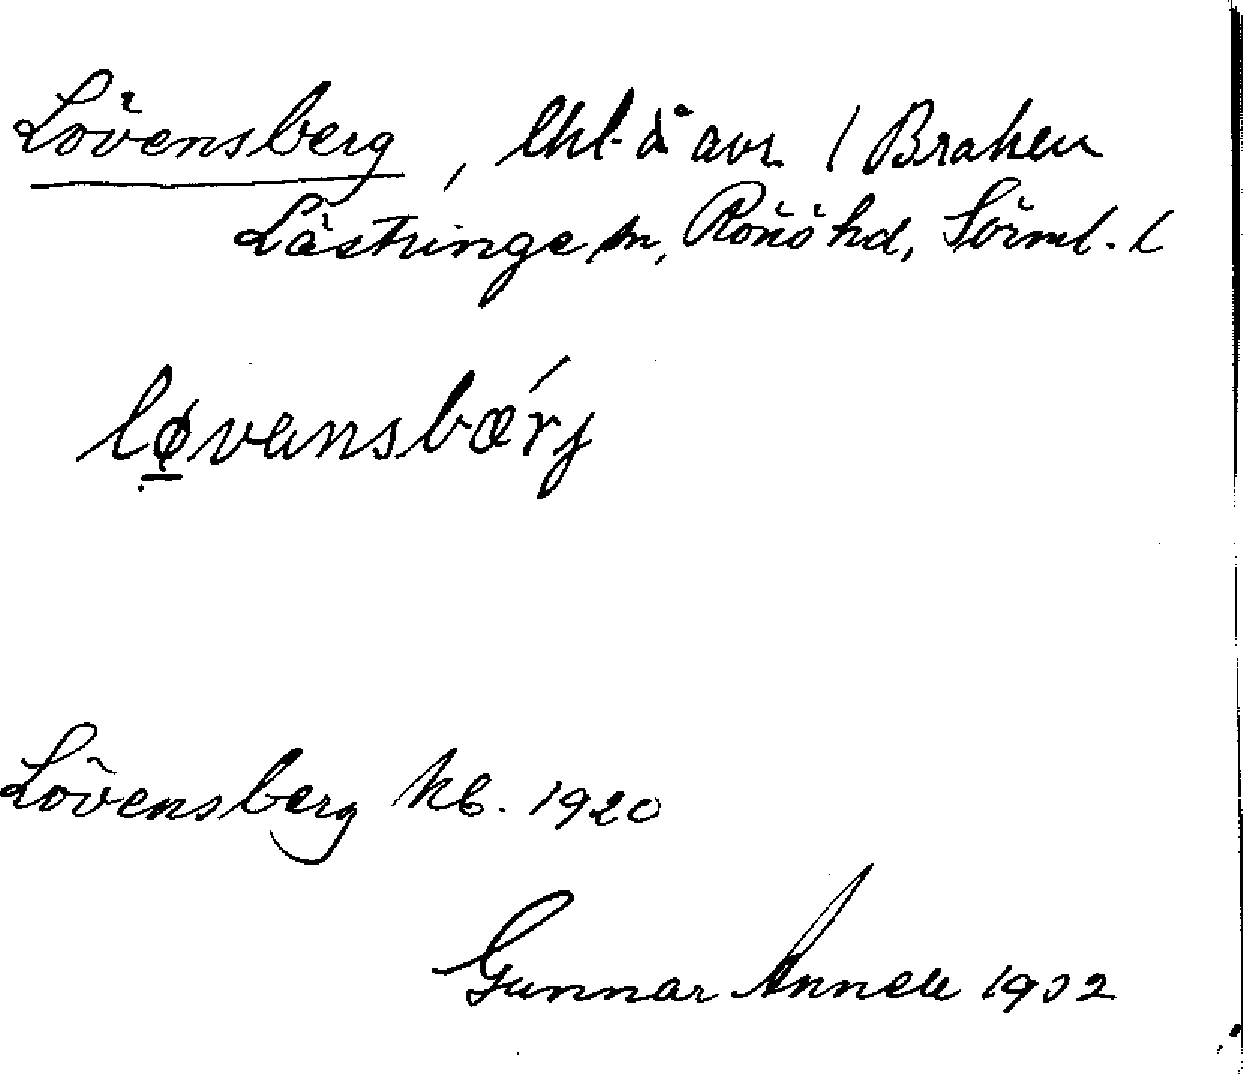 Lövensberg, lht. å avs. / Braken
Lästringe sn, Rönö hd, Sörml. l
lövansbǽrj
Lövensberg kb. 1920
Gunnar Annell 1932